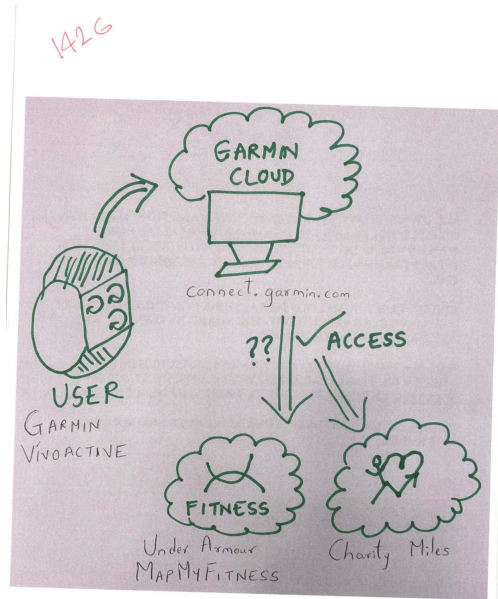 1426
GARMIN
CLOUD
connect.garmin.com
??
ACCESS
USER
GARMIN
VÍVOACTIVE
FITNESS
Under Armour
MAPMYFITNESS
Charity Miles